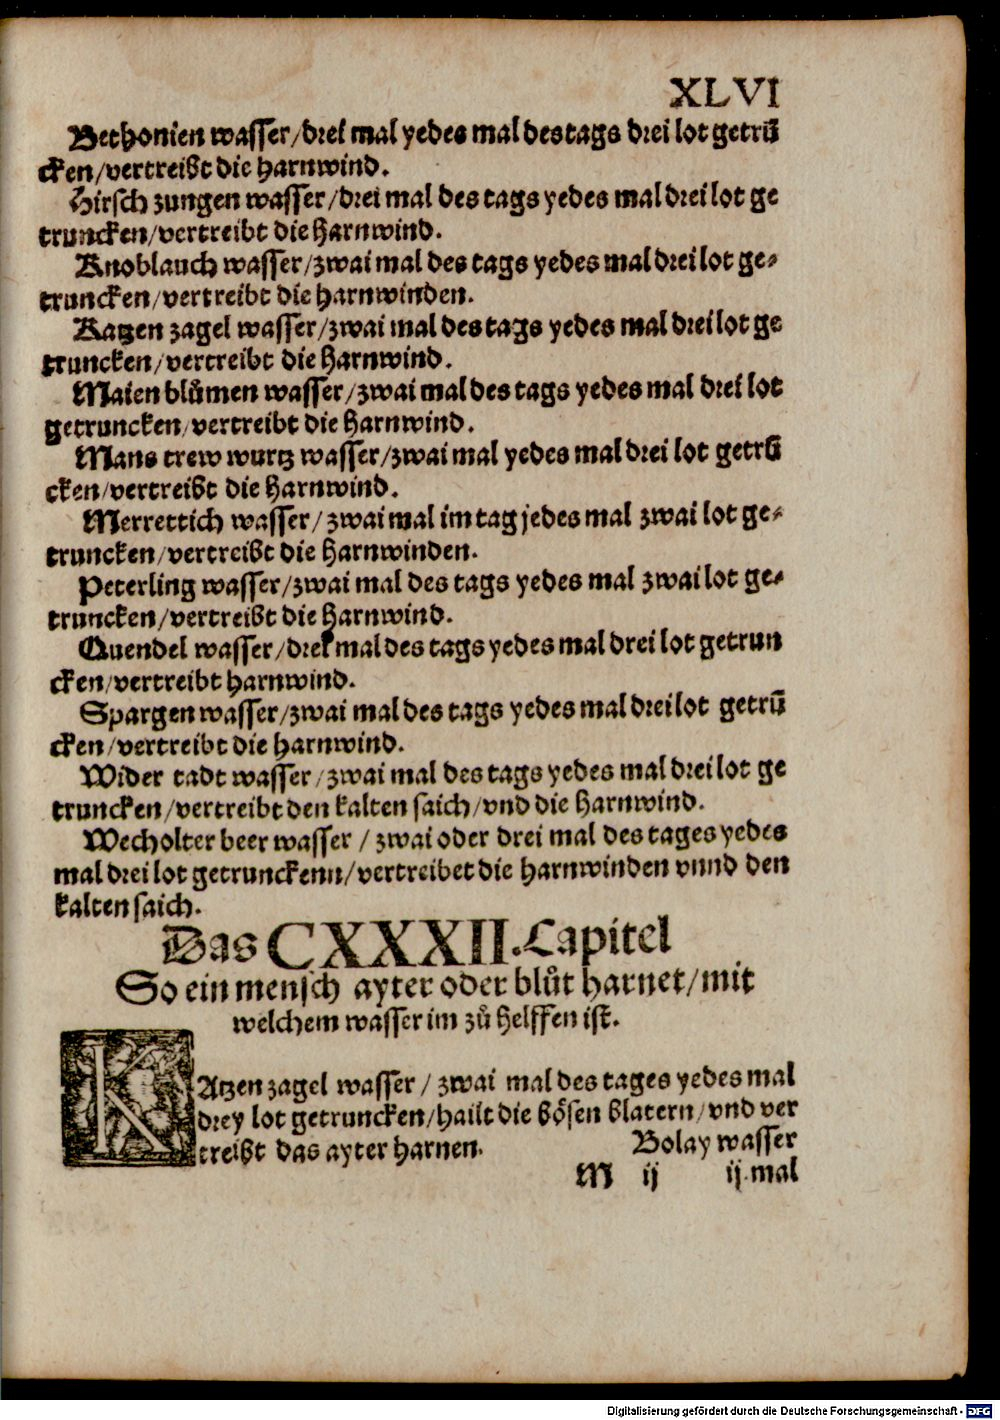 XLVI
Bethonien wasser/drei mal yedes mal des tags drei lot getrū
cken/vertreibt die harnwind.
Hirsch zungen wasser/drei mal des tags yedes mal drei lot ge
truncken/vertreibt die harnwind.
Knoblauch wasser/zwai mal des tags yedes mal drei lot ge-
truncken/vertreibt die harnwinden.
Katzen zagel wasser/zwai mal des tags yedes mal drei lot ge
truncken/vertreibt die harnwind.
Maien blůmen wasser/zwai mal des tags yedes mal drei lot
getruncken/vertreibt die harnwind.
Mans trew wurtz wasser/zwai mal yedes mal drei lot getrū
cken/vertreibt die harnwind.
Merrettich wasser/zwai mal im tag jedes mal zwai lot ge-
truncken/vertreibt die harnwinden.
Peterling wasser/zwai mal des tags yedes mal zwai lot ge-
truncken/vertreibt die harnwind.
Quendel wasser/drei mal des tags yedes mal drei lot getrun
cken/vertreibt harnwind.
Spargen wasser/zwai mal des tags yedes mal drei lot getrū
cken/vertreibt die harnwind.
Wider tadt wasser/zwai mal des tags yedes mal drei lot ge
truncken/vertreibt den kalten saich/vnd die harnwind.
Wecholter beer wasser/zwai oder drei mal des tages yedes
mal drei lot getrunckenn/vertreibet die harnwinden vnnd den
kalten saich.
Das CXXXII.Capitel
So ein mensch ayter oder blůt harnet/mit
welchem wasser im zů helffen ist.
KAtzen zagel wasser/zwai mal des tages yedes mal
drey lot getruncken/hailt die bösen blatern/vnd ver
treibt das ayter harnen. Bolay wasser
M ij ij.mal
Digitalisierung gefördert durch die Deutsche Forschungsgemeinschaft - DFG